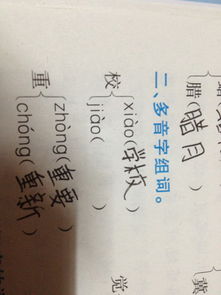 腊(腊月)
冀
二、多音字组词。
校{xiào(学校)
jiào( )
觉
重{zhòng(重要)
chóng(重新)